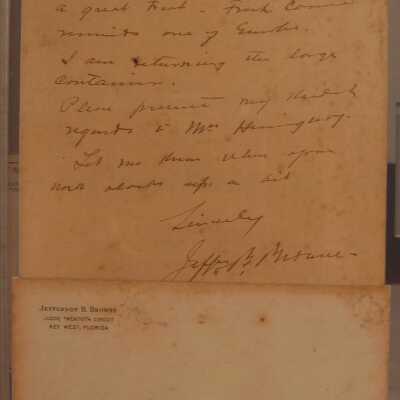 a great treat - Fresh Caviar
reminds one of Europe.
I am returning the large
container.
Please present my kindest
regards to Mrs Hemingway.
Let me know when your
work slacks up a bit
Sincerely
Jefferson B. Browne
JEFFERSON B. BROWNE
JUDGE TWENTIETH CIRCUIT
KEY WEST, FLORIDA